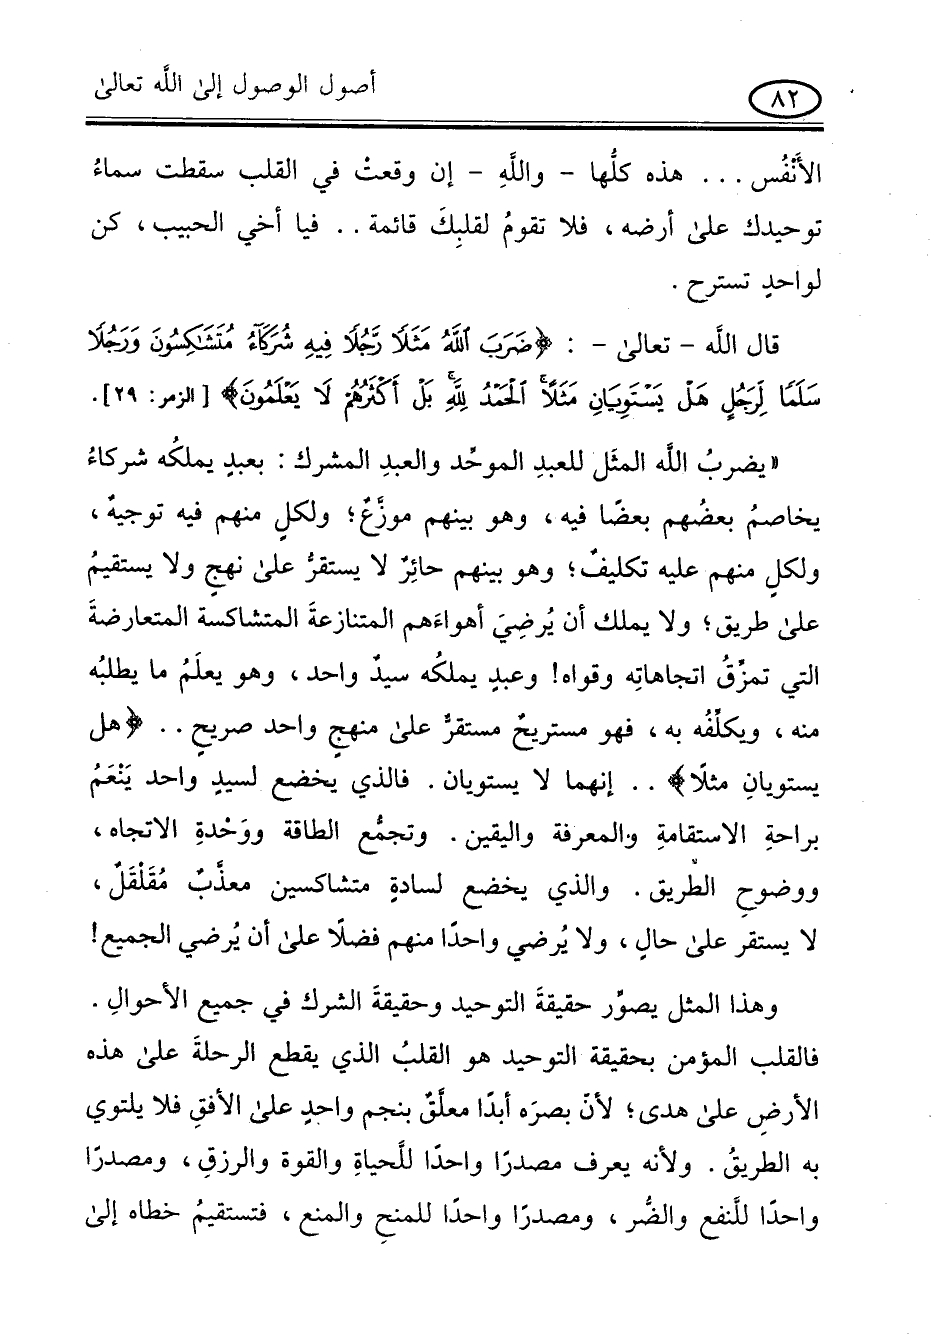 أصول الوصول إلىٰ اللَّه تعالىٰ
٨٢
الأَنْفُس . . . هذه كلُّها - واللَّهِ - إن وقعتْ في القلب سقطت سماءُ
توحيدك علىٰ أرضه ، فلا تقومُ لقلبِكَ قائمة . . فيا أخي الحبيب ، كن
لواحدٍ تسترح .
قال اللَّه - تعالىٰ - : ﴿ضَرَبَ ٱللَّهُ مَثَلًا رَّجُلًا فِيهِ شُرَكَآءُ مُتَشَـٰكِسُونَ وَرَجُلًا
سَلَمًا لِّرَجُلٍ هَلْ يَسْتَوِيَانِ مَثَلًاۚ ٱلْحَمْدُ لِلَّهِۚ بَلْ أَكْثَرُهُمْ لَا يَعْلَمُونَ﴾ [الزمر : ٢٩] .
« يضربُ اللَّه المثَل للعبدِ الموحِّد والعبدِ المشرك : بعبدٍ يملكُه شركاءُ
يخاصمُ بعضُهم بعضًا فيه ، وهو بينهم موزَّعٌ ؛ ولكلٍ منهم فيه توجيهٌ ،
ولكلٍ منهم عليه تكليفٌ ؛ وهو بينهم حائِرٌ لا يستقرُّ علىٰ نهجٍ ولا يستقيمُ
علىٰ طريق ؛ ولا يملك أن يُرضِيَ أهواءَهم المتنازعةَ المتشاكسة المتعارضةَ
التي تمزِّقُ اتجاهاتِه وقواه ! وعبدٍ يملكُه سيدٌ واحد ، وهو يعلَمُ ما يطلبُه
منه ، ويكلِّفُه به ، فهو مستريحٌ مستقرٌّ علىٰ منهجٍ واحد صريحٍ . . ﴿هل
يستويانِ مثلًا﴾ . . إنهما لا يستويان . فالذي يخضع لسيدٍ واحد يَنْعَمُ
براحةِ الاستقامةِ والمعرفة واليقين . وتجمُّع الطاقة ووَحْدةِ الاتجاه ،
ووضوحِ الطريق . والذي يخضع لسادةٍ متشاكسين معذَّبٌ مُقَلْقَلٌ ،
لا يستقر علىٰ حال ، ولا يُرضي واحدًا منهم فضلًا علىٰ أن يُرضي الجميع !
وهذا المثل يصوِّر حقيقةَ التوحيد وحقيقةَ الشرك في جميع الأحوالِ .
فالقلب المؤمن بحقيقة التوحيد هو القلبُ الذي يقطع الرحلةَ علىٰ هذه
الأرضِ علىٰ هدى ؛ لأنّ بصرَه أبدًا معلَّقٌ بنجم واحدٍ علىٰ الأفقِ فلا يلتوي
به الطريقُ . ولأنه يعرف مصدرًا واحدًا للَّحياةِ والقوة والرزقِ ، ومصدرًا
واحدًا للَّنفع والضُّر ، ومصدرًا واحدًا للمنحِ والمنع ، فتستقيمُ خطاه إلىٰ